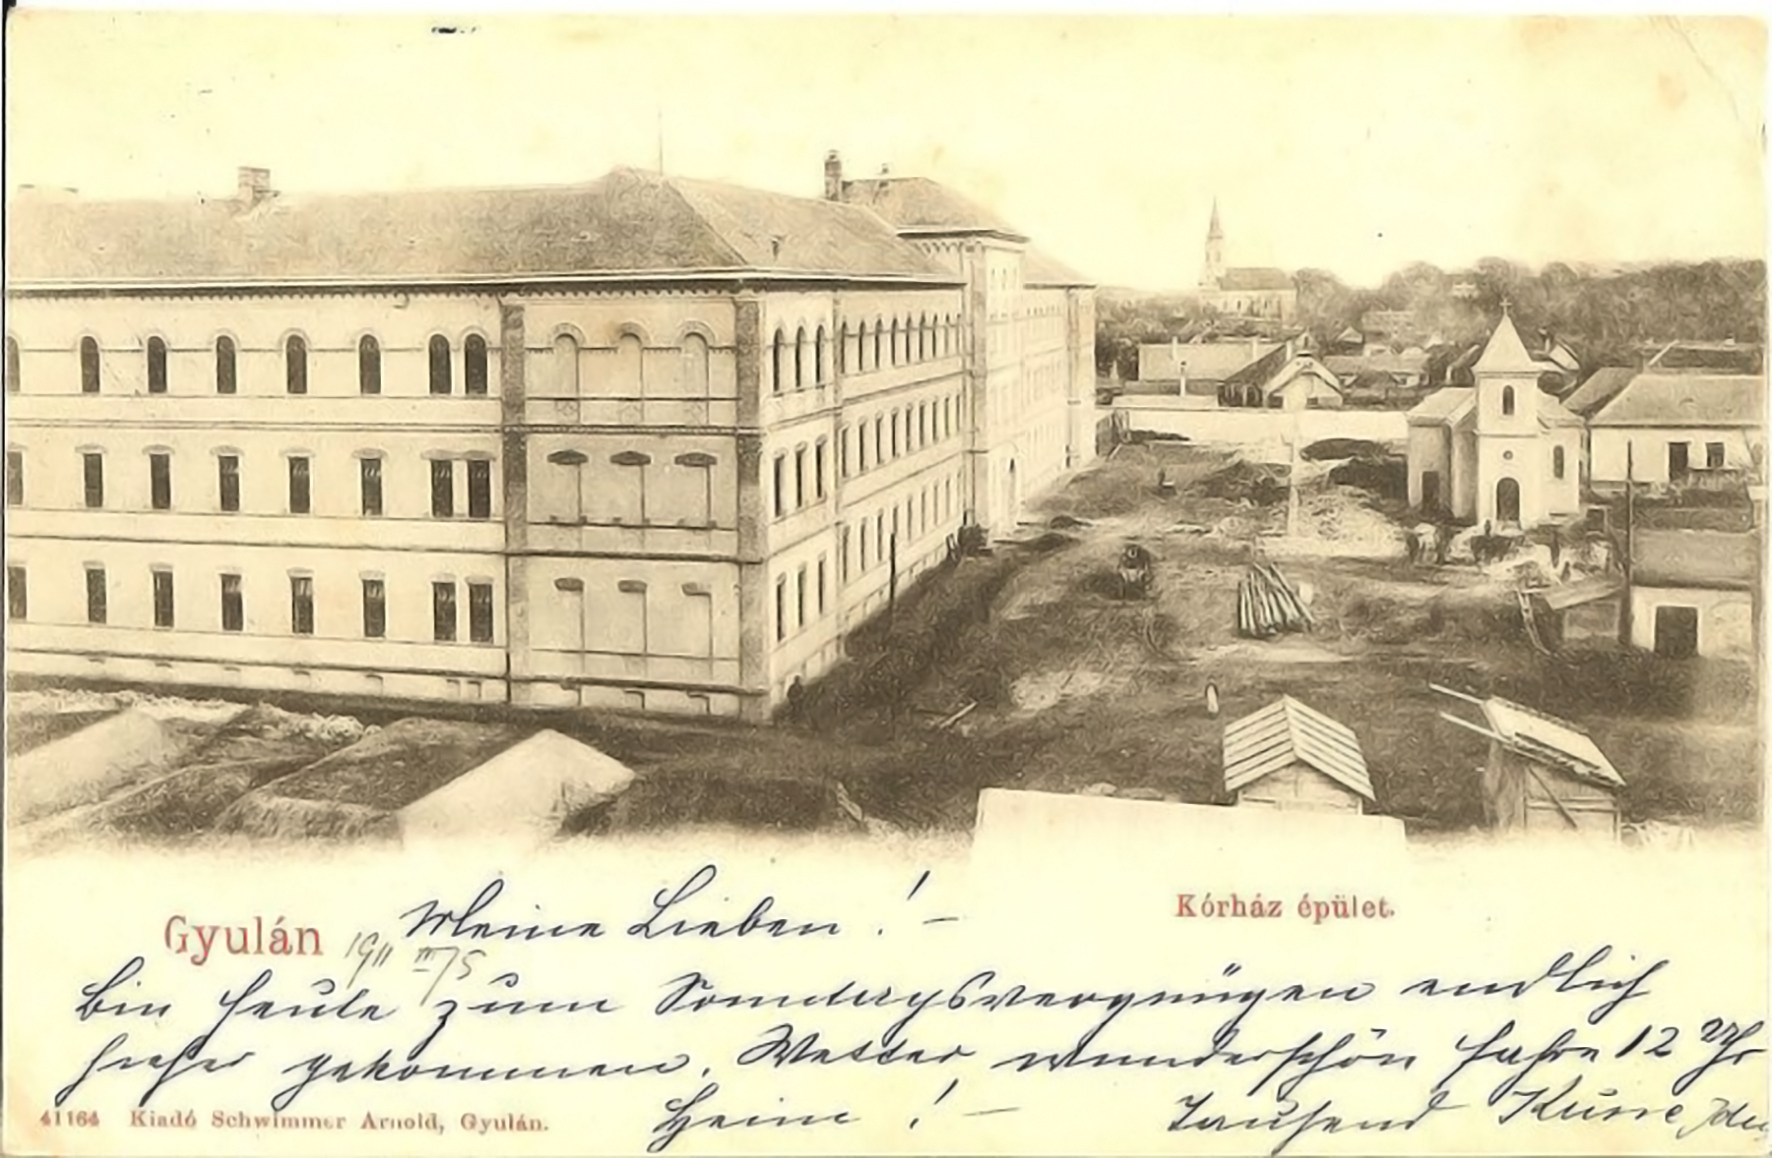 Kórház épület.
Gyulán
Meine Lieben! –
1911 III/5
bin heute zum Sonntagsvergnügen endlich
hieher gekommen. Wetter wunderschön fahre 12 Uhr
Heim! – Tausend Küsse
41164 Kiadó Schwimmer Arnold, Gyulán.